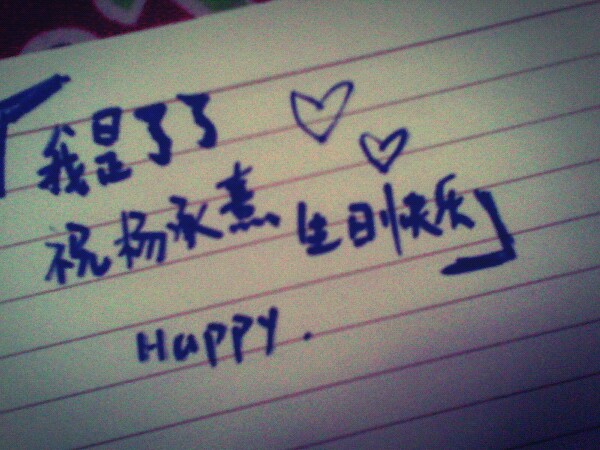 「我是了了
祝杨承熹 生日快乐」
Happy.